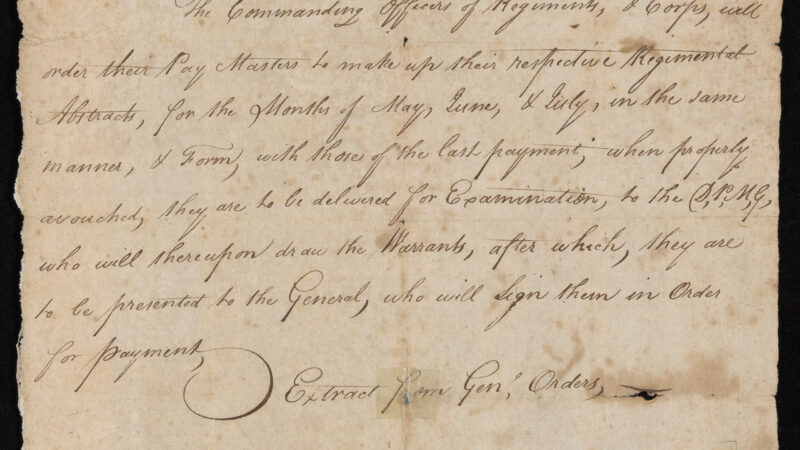 The Commanding Officers of Regiments, & Corps, will
order their Pay Masters to make up their respective Regimental
Abstracts, for the Months of May, June, & July, in the same
manner, & Form, with those of the last payment, when properly
avouched, they are to be delivered for Examination, to the D, P, M, G,
who will thereupon draw the Warrants, after which, they are
to be presented to the General, who will Sign them in Order
for payment,
Extract from Genl, Orders,